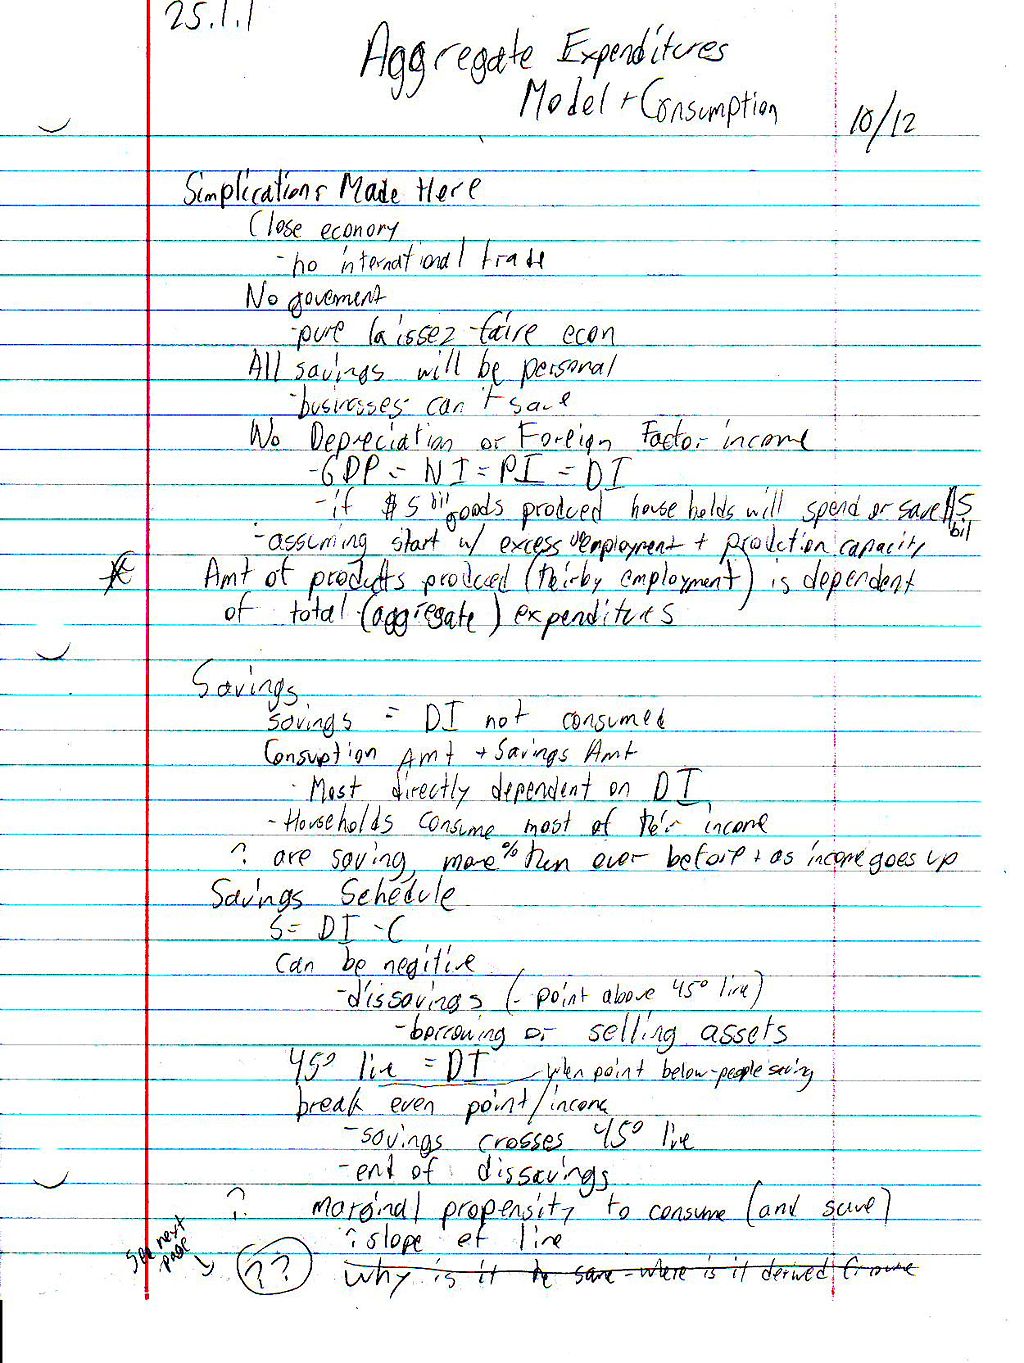 25.1.1
Aggregate Expenditures
Model + Consumption
10/12
Simplications Made Here
Close economy
- no international trade
No goverment
- pure laissez-faire econ
All savings will be personal
- businesses can't save
No Depreciation or Foreign Factor income
- GDP = NI = PI = DI
- if $5 bil goods produced households will spend or save $5 bil
- assuming start w/ excess unemployment + production capacity
Amt of products produced (theirby employment) is dependent
of total (aggregate) expenditures
Savings
savings = DI not consumed
Consuption Amt + Savings Amt
- Most directly dependent on DI
- Households consume most of their income
? are saving more % then ever before + as income goes up
Savings Schedule
S = DI - C
can be negitive
- dissavings (- point above 45° line)
- borrowing or selling assets
45° line = DI - when point below - people saving
break even point/income
- savings crosses 45° line
- end of dissavings
? marginal propensity to consume (and save)
? slope of line
See next page
?? why is it the same - where is it derived from